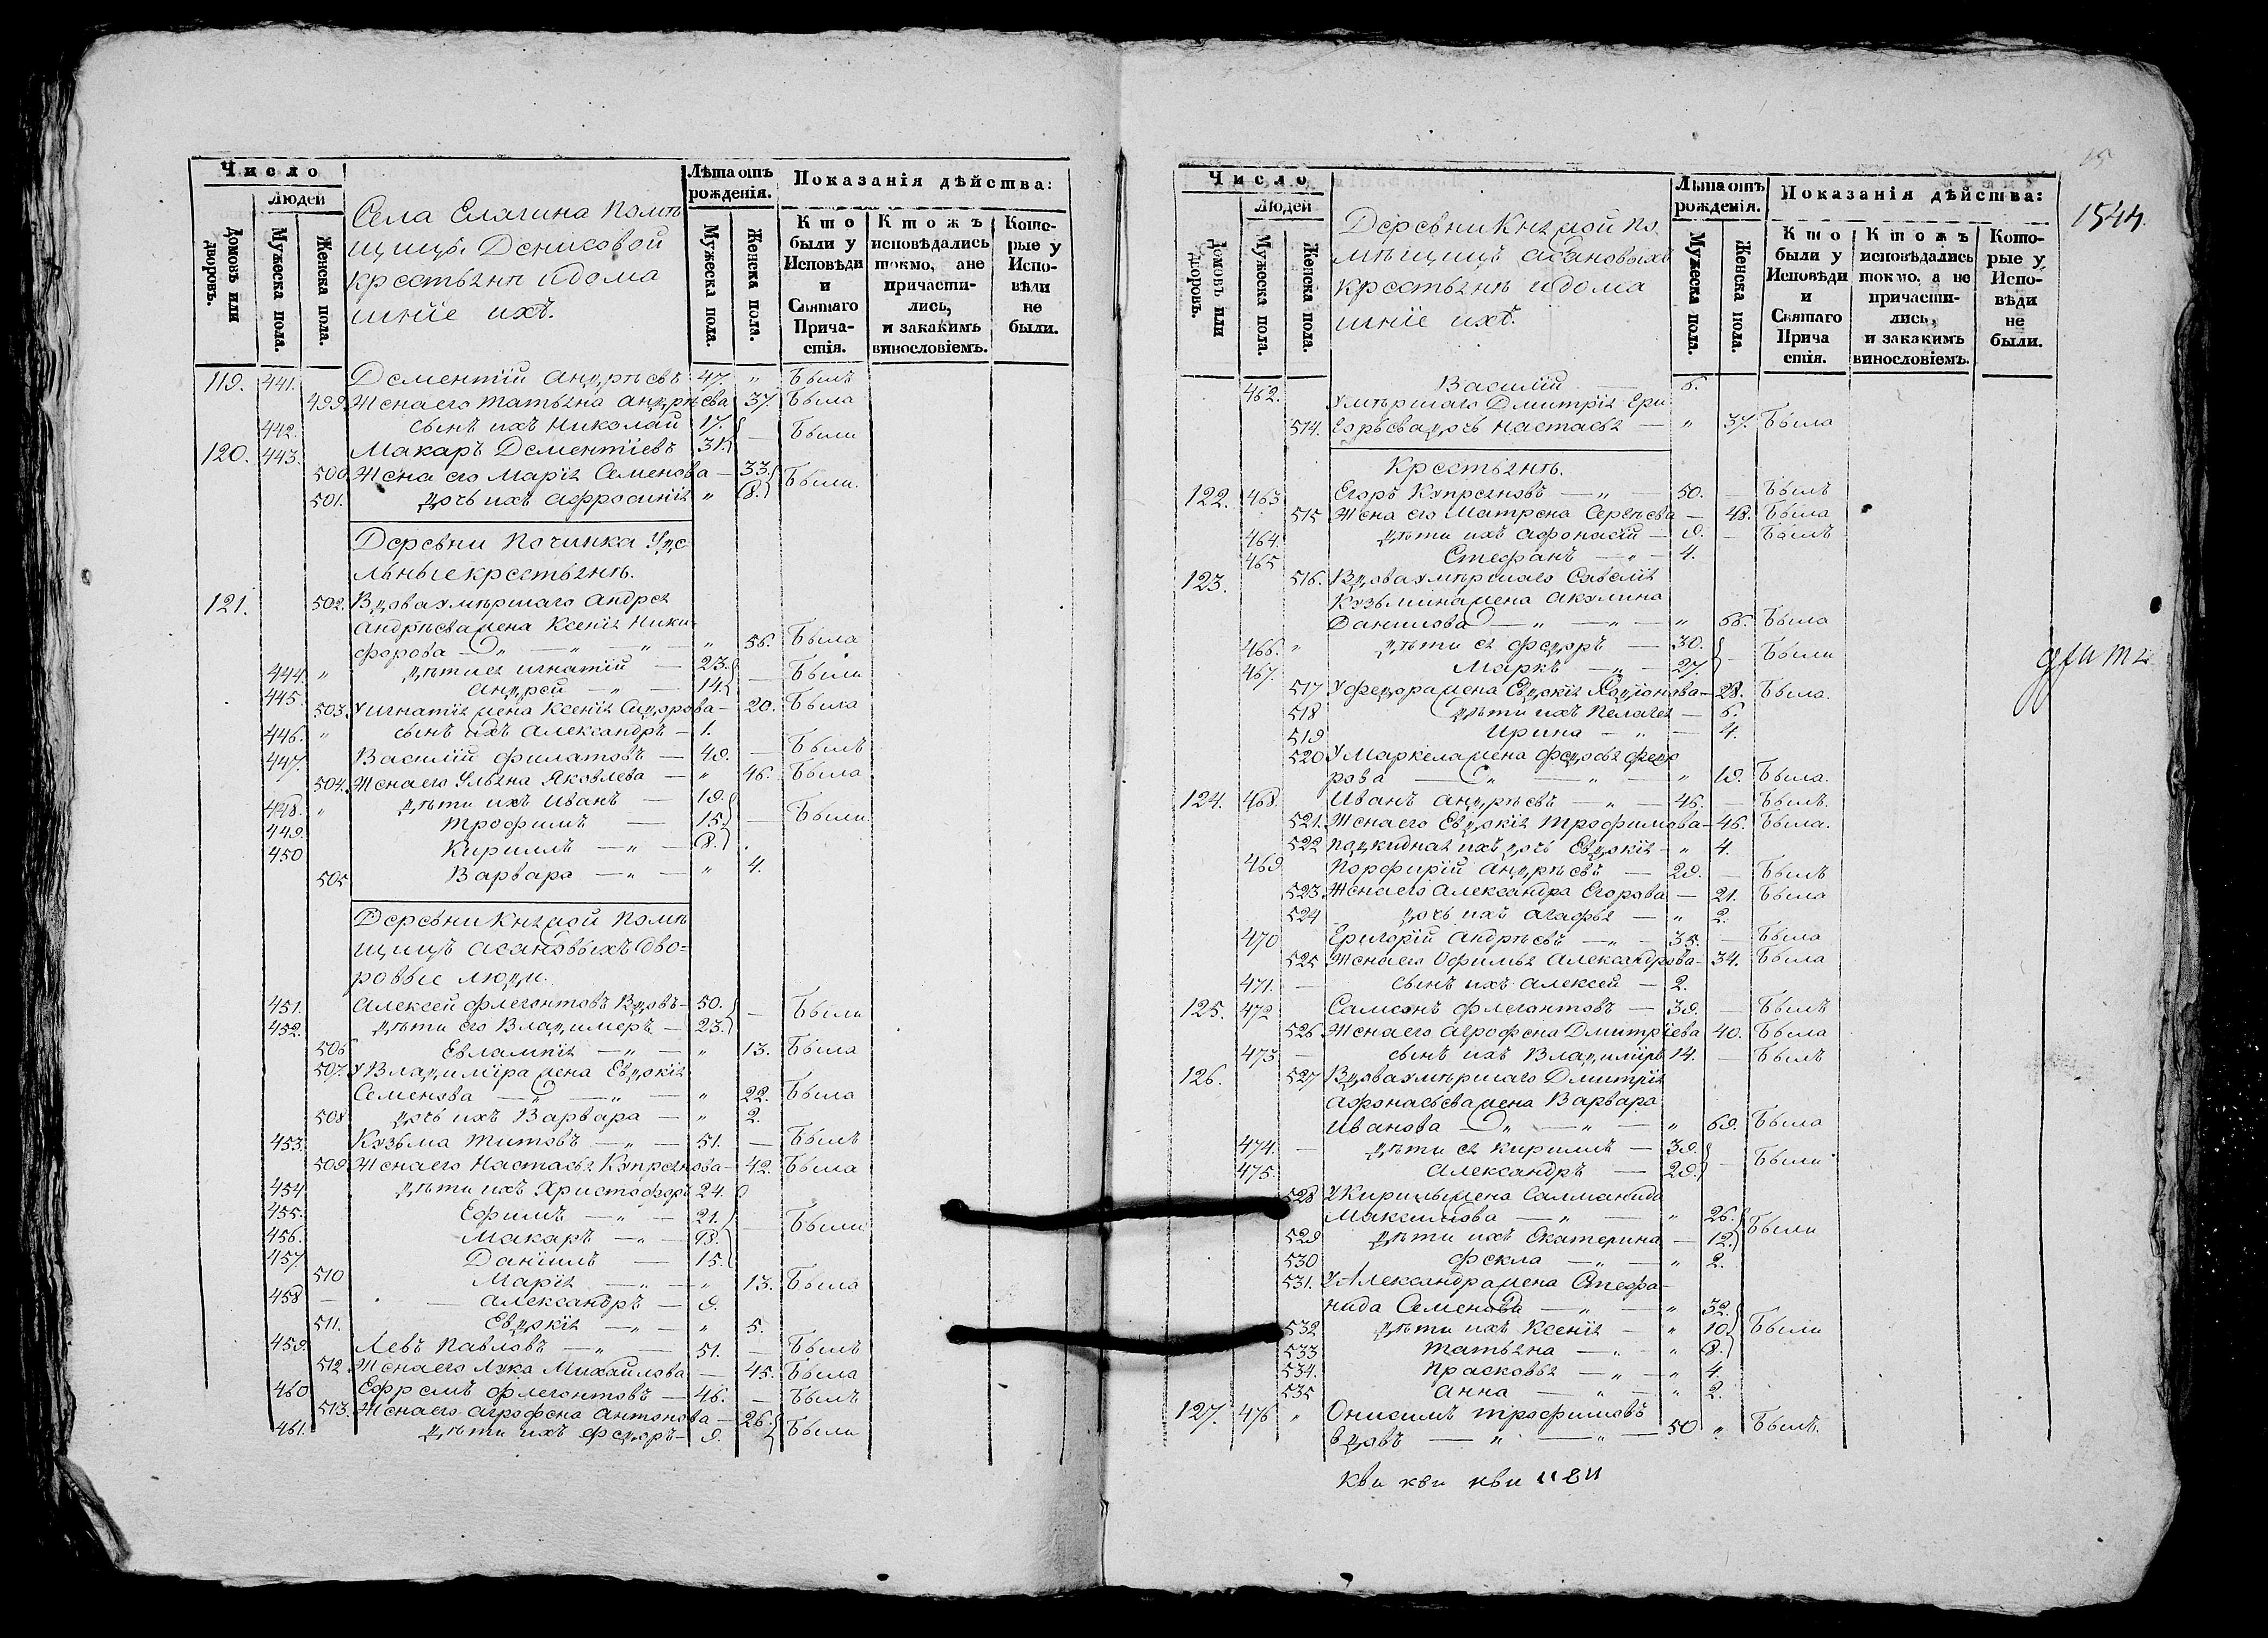 Число
Людей
Домовъ или дворовъ.
Мужеска пола.
Женска пола.
Села Елагина помѣ
щицы Денисовой
крестьянѣ и дома
шніе ихъ.
Лѣта отъ рожденія.
Мужеска пола.
Женска пола.
Показанія дѣйства:
Кто были у Исповѣди и Святаго Прича-стія.
Ктожъ исповѣдались токмо, ане причасти-лись, и закакимъ винословіемъ.
Кото-рые у Испо-вѣди не были.
119. 441. Дементій Андрѣевъ 47. " Былъ
499 Жена его Татьяна Андрѣева 37. Была
442. сынъ ихъ Николай 17. — Были
120. 443. Макаръ Дементіевъ 31.
500 Жена его Марія Семенова — 33. Были.
501. дочь ихъ Афросинія " 8.
Деревни Починка Уде
льные крестьянѣ.
121. 502. Вдова умѣршаго Андрея
Андрѣева жена Ксенія Ники
форова — " — " — " 56. Была
444 " дѣти ея Игнатій — 23. — Были
445. Андрей — " — 14.
503. У Игнатія жена Ксенія Сидорова — 20. Была
446. " сынъ ихъ Александръ — 1.
447. Василій Филатовъ — 49. — Былъ
504. Жена его Ульяна Яковлева — " 46. Была
448. " дѣти ихъ Иванъ — 19. — Были
449. Трофимъ — 15.
450 Кириллъ — " — 8.
505 Варвара — " — " 4.
Деревни Княжой помѣ
щицъ Асановыхъ дво=
ровые люди.
451. Алексей Флегонтовъ Вдовъ — 50. — Были
452. дѣти его Владимеръ — 23.
506 Евлампія — " — " 13. Была
507. У Владиміра жена Евдокія
Семенова — " — " — " 22. Была
508 дочь ихъ Варвара — " 2.
453. Кузьма Титовъ — " — 51. — Былъ
509. Жена его Настасья Купреянова — 42. Была
454 дѣти ихъ Христофоръ 24.
455. Ефимъ — " — 21. — Были
456. Макаръ — " — 18.
457. Даніилъ — 15.
510 Марія — " — " 13. Была
458 — Александръ — 9.
511. Евдокія — " — " 5.
459. Левъ Павловъ — " — 51. — Былъ
512. Жена его Лука Михайлова — 45. Была
460 Ефремъ Флегонтовъ — 46. — Былъ
513. Жена его Агрофена Антонова — 26. Были
461. дѣти ихъ Федоръ — 9.
15
1544.
Число
Людей
Домовъ или дворовъ.
Мужеска пола.
Женска пола.
Деревни Княжой по
мѣщицъ Асановыхъ
крестьянѣ и дома
шніе ихъ.
Лѣта отъ рожденія.
Мужеска пола.
Женска пола.
Показанія дѣйства:
Кто были у Исповѣди и Святаго Прича стія.
Ктожъ исповѣдались токмо, а не причасти-лись, и закакимъ винословіемъ.
Кото-рые у Испо-вѣди не были.
462. Василій — 6.
Умѣршаго Дмитрія Гри
514. горьева дочь Настасья — " 37. Была
Крестьянѣ.
122. 463 Егоръ Купреяновъ — " — 50. — Былъ
515 Жена его Матрена Сергѣева — 48. Была
464. дѣти ихъ Афонасій — 9. — Былъ
465 Стефанъ — " — 4.
123. 516. Вдова умѣршаго Савелія
Кузьмина жена Акулина
Данилова — " — " — " 66. Была
466. " дѣти ея Федоръ — 30. — Были
467. Маркъ — " — 27.
517 У Федора жена Евдокія Радіонова — 28. Была.
518 дѣти ихъ Пелагея — 6.
519 Ирина — " — 4.
520 У Маркела жена Федосья Федо
рова — " — " — " 19. Была.
124. 468. Иванъ Андрѣевъ — " — 46. — Былъ.
521. Жена его Евдокія Трофимова — 46. Была.
522 Подкидная ихъ дочь Евдокія — " 4.
469 Порфирій Андрѣевъ — 29. — Былъ
523. Жена его Александра Егорова — 21. Была
524 дочь ихъ Агафья — " 2.
470 Григорій Андрѣевъ — " — 35. — Была
525 Жена его Офимья Александрова — 34. Была
471. — сынъ ихъ Алексей — 2.
125. 472 Самсонъ Флегонтовъ — 39. — Былъ
526 Жена его Агрофена Дмитріева 40. Была
473 — сынъ ихъ Владиміръ 14. — Былъ
126. 527 Вдова умѣршаго Дмитрія
Афонасьева жена Варвара
Иванова — " — " — " 69. Была
474. — дѣти ея Кириллъ — 39. — Были
475. Александръ — 29.
528 У Кирилы жена Саламанида
Максимова — " — " 26. Были
529 дѣти ихъ Екатерина — 12.
530 Фекла — " — " 2.
531. У Александра жена Стефа-
нида Семенова — " — " 32. Были
532 дѣти ихъ Ксенія — " 10.
533 Татьяна — " — " 8.
534. Прасковья — " — " 4.
535 Анна — " — " 2.
127. 476 " Онисимъ Трофимовъ
вдовъ — " — " — 50 " Былъ.